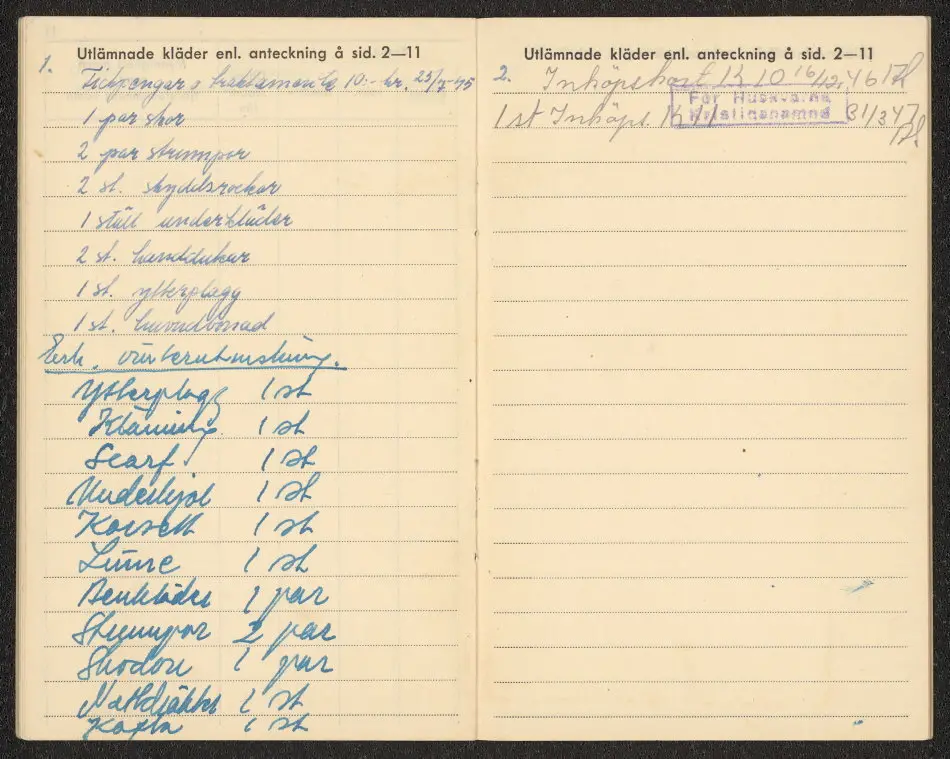 Utlämnade kläder enl. anteckning å sid. 2—11
1.
10:- kr. 25/7-45
1 par skor
2 par strumpor
2 st. skyddsrockar
1 ställ underkläder
2 st. handdukar
1 st. ytterplagg
1 st. huvudbonad
Erh. vinterutrustning.
Ytterplagg 1 st
Klänning 1 st
Scarf 1 st
Underkjol 1 st
Korsett 1 st
Linne 1 st
Benkläder 1 par
Strumpor 2 par
Skodon 1 par
1 st
Kofta 1 st
Utlämnade kläder enl. anteckning å sid. 2—11
2. Inköpskort K 10 16/12.46
1 st Inköps. K 11 31/3 47
För Huskvarna
Kristidsnämnd